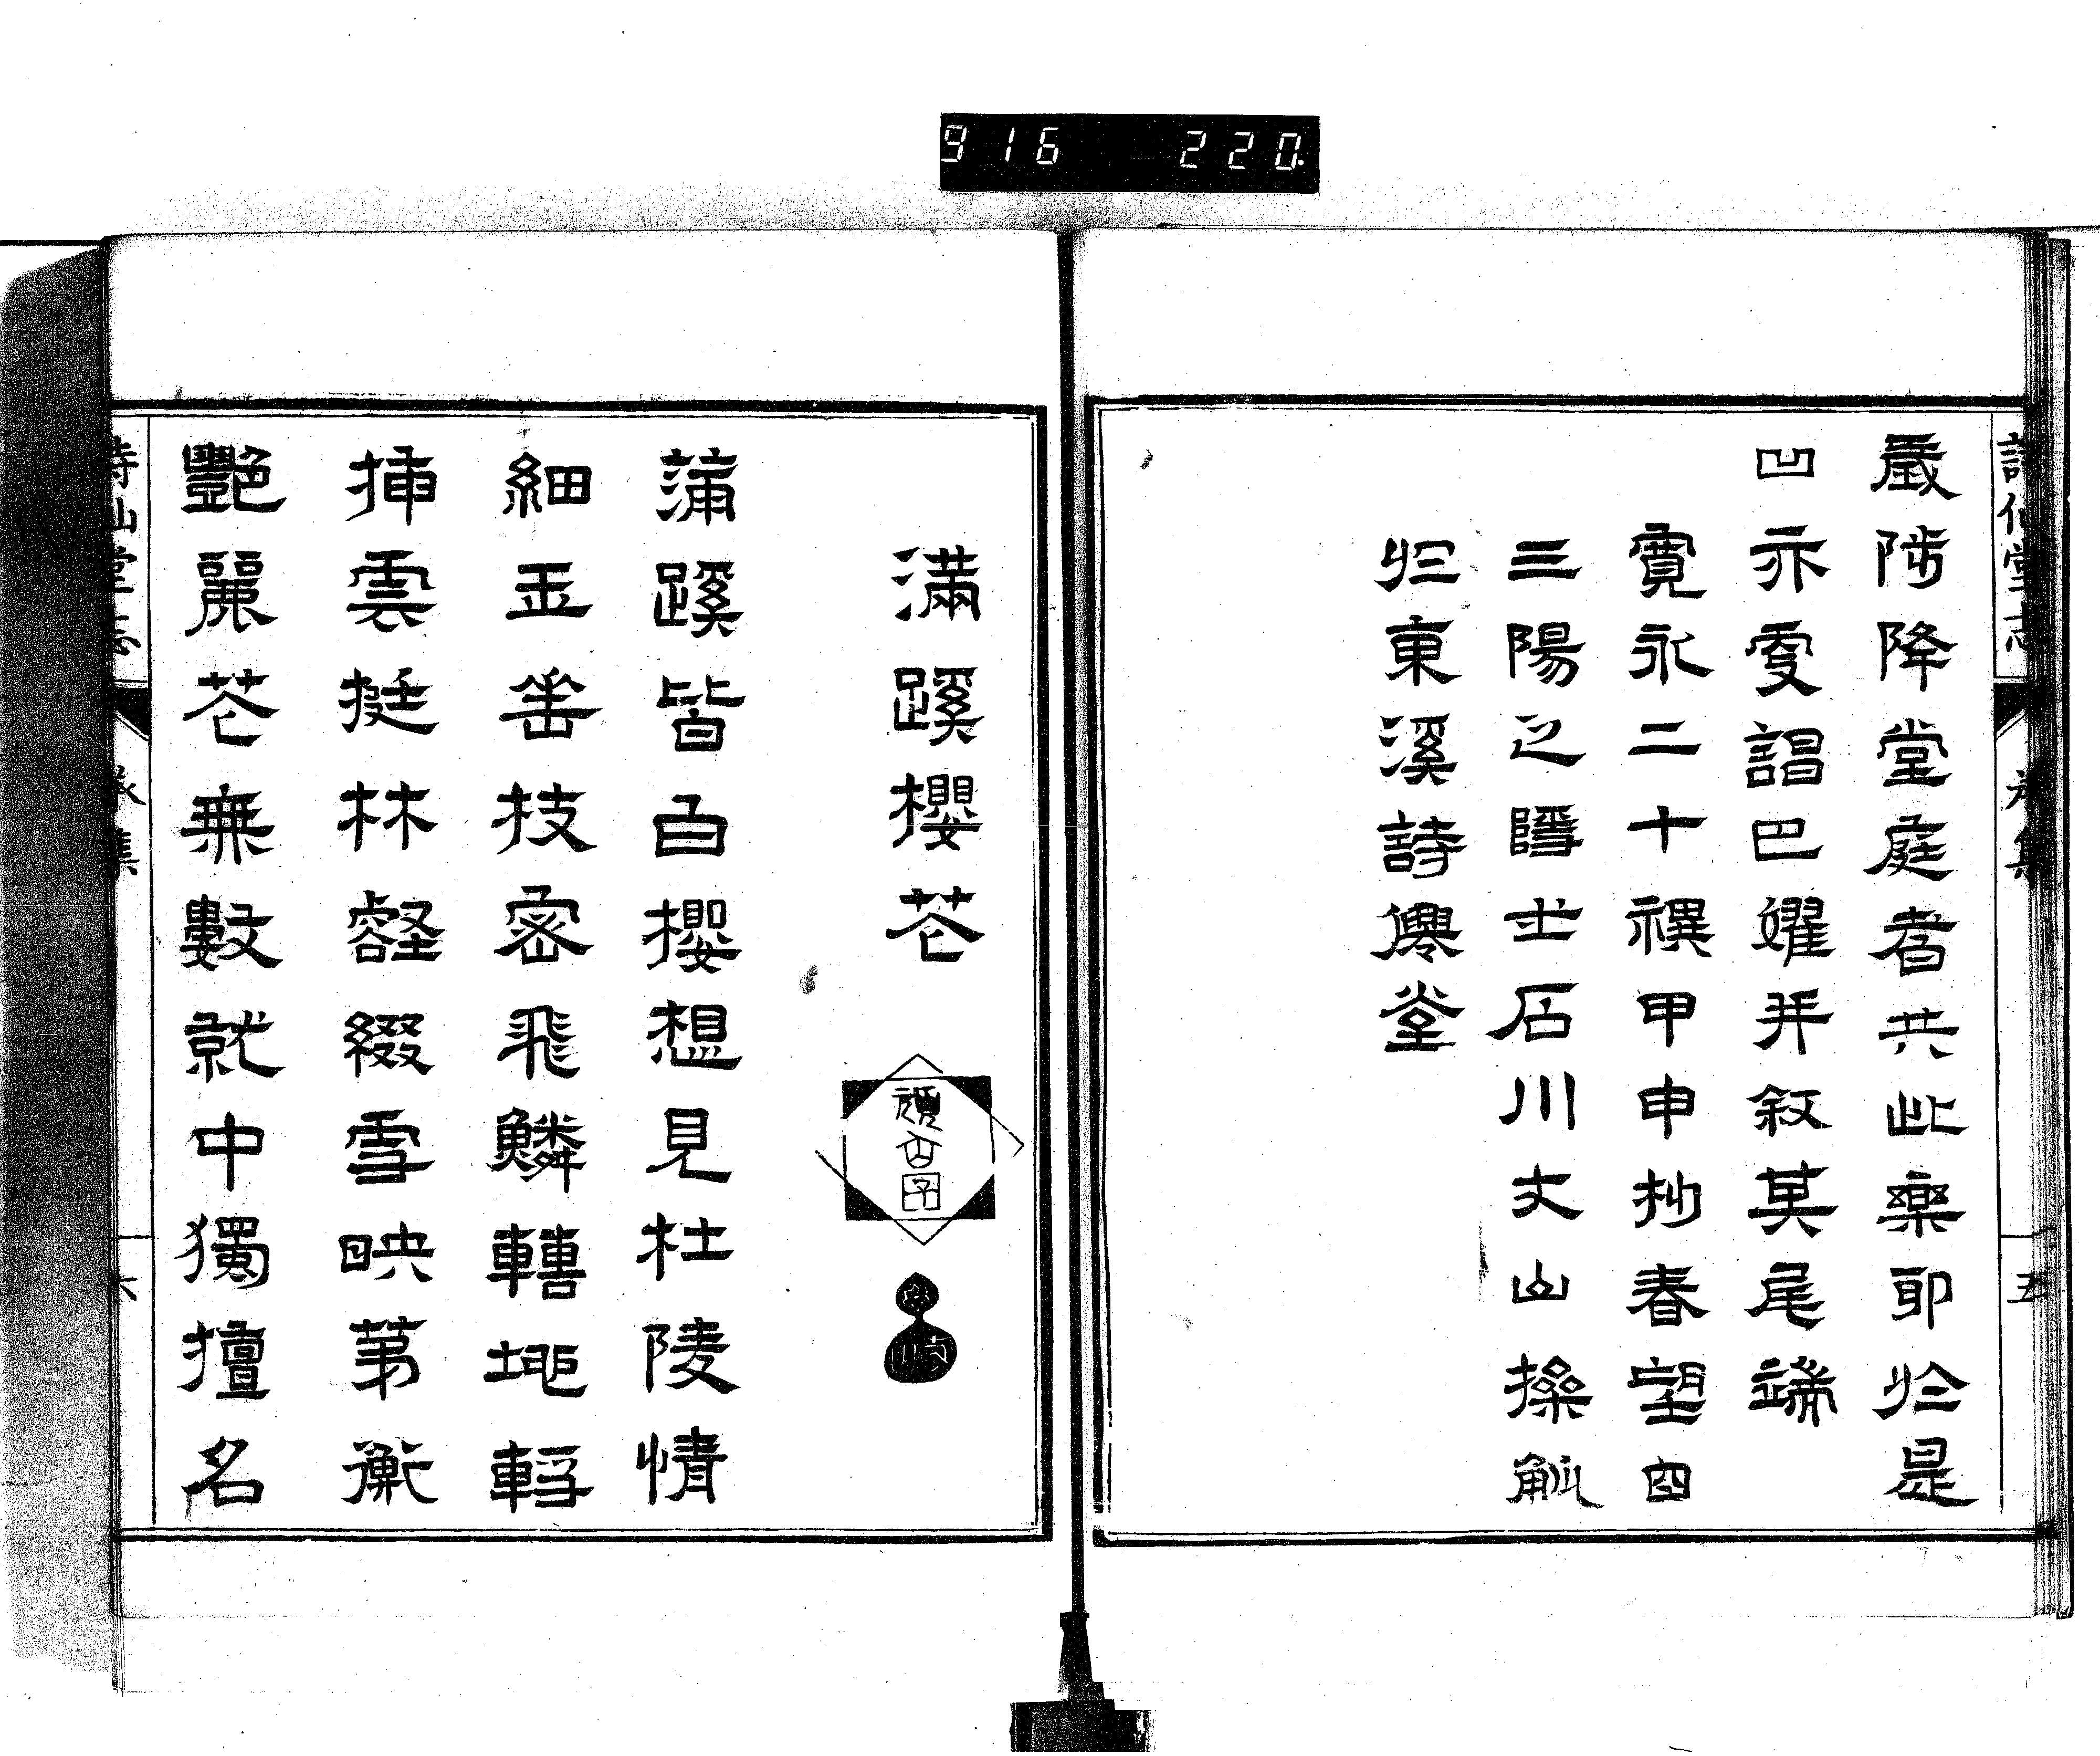 916 220
詩仙堂志
五
歳陟降堂庭者共此樂耶於是
凹亦叓謌巴嬥并叙其尾端
寛永二十禩甲申杪春望日
三陽之隱士石川丈山操觚
於東溪詩僊堂
滿蹊櫻花
滿蹊皆白櫻想見杜陵情
細玉垂枝密飛鱗轉地輕
挿雲挺林壑綴雪映茅衡
艷麗花無數就中獨擅名
詩仙堂志
六